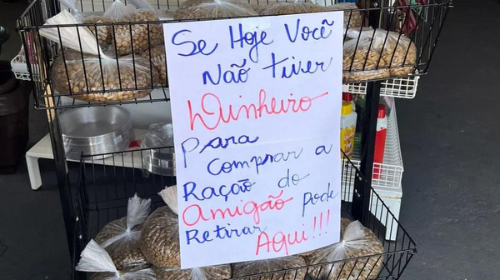 Se Hoje Você
Não tiver
Dinheiro
Para
Comprar a
Ração do
Amigão Pode
Retirar Aqui!!!